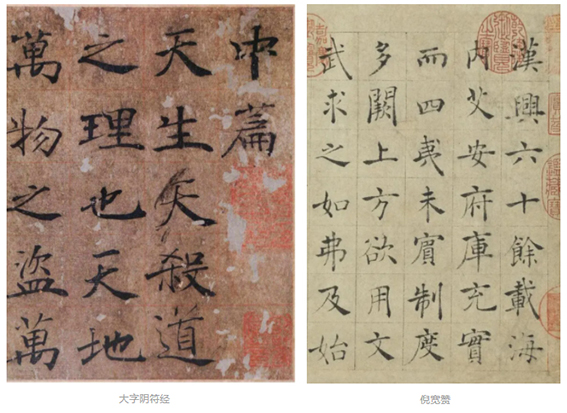 中篇
天生天殺道
之理也天地
萬物之盜萬
大字阴符经
漢興六十餘載海
内艾安府庫充實
而四夷未賓制度
多闕上方欲用文
武求之如弗及始
倪宽赞